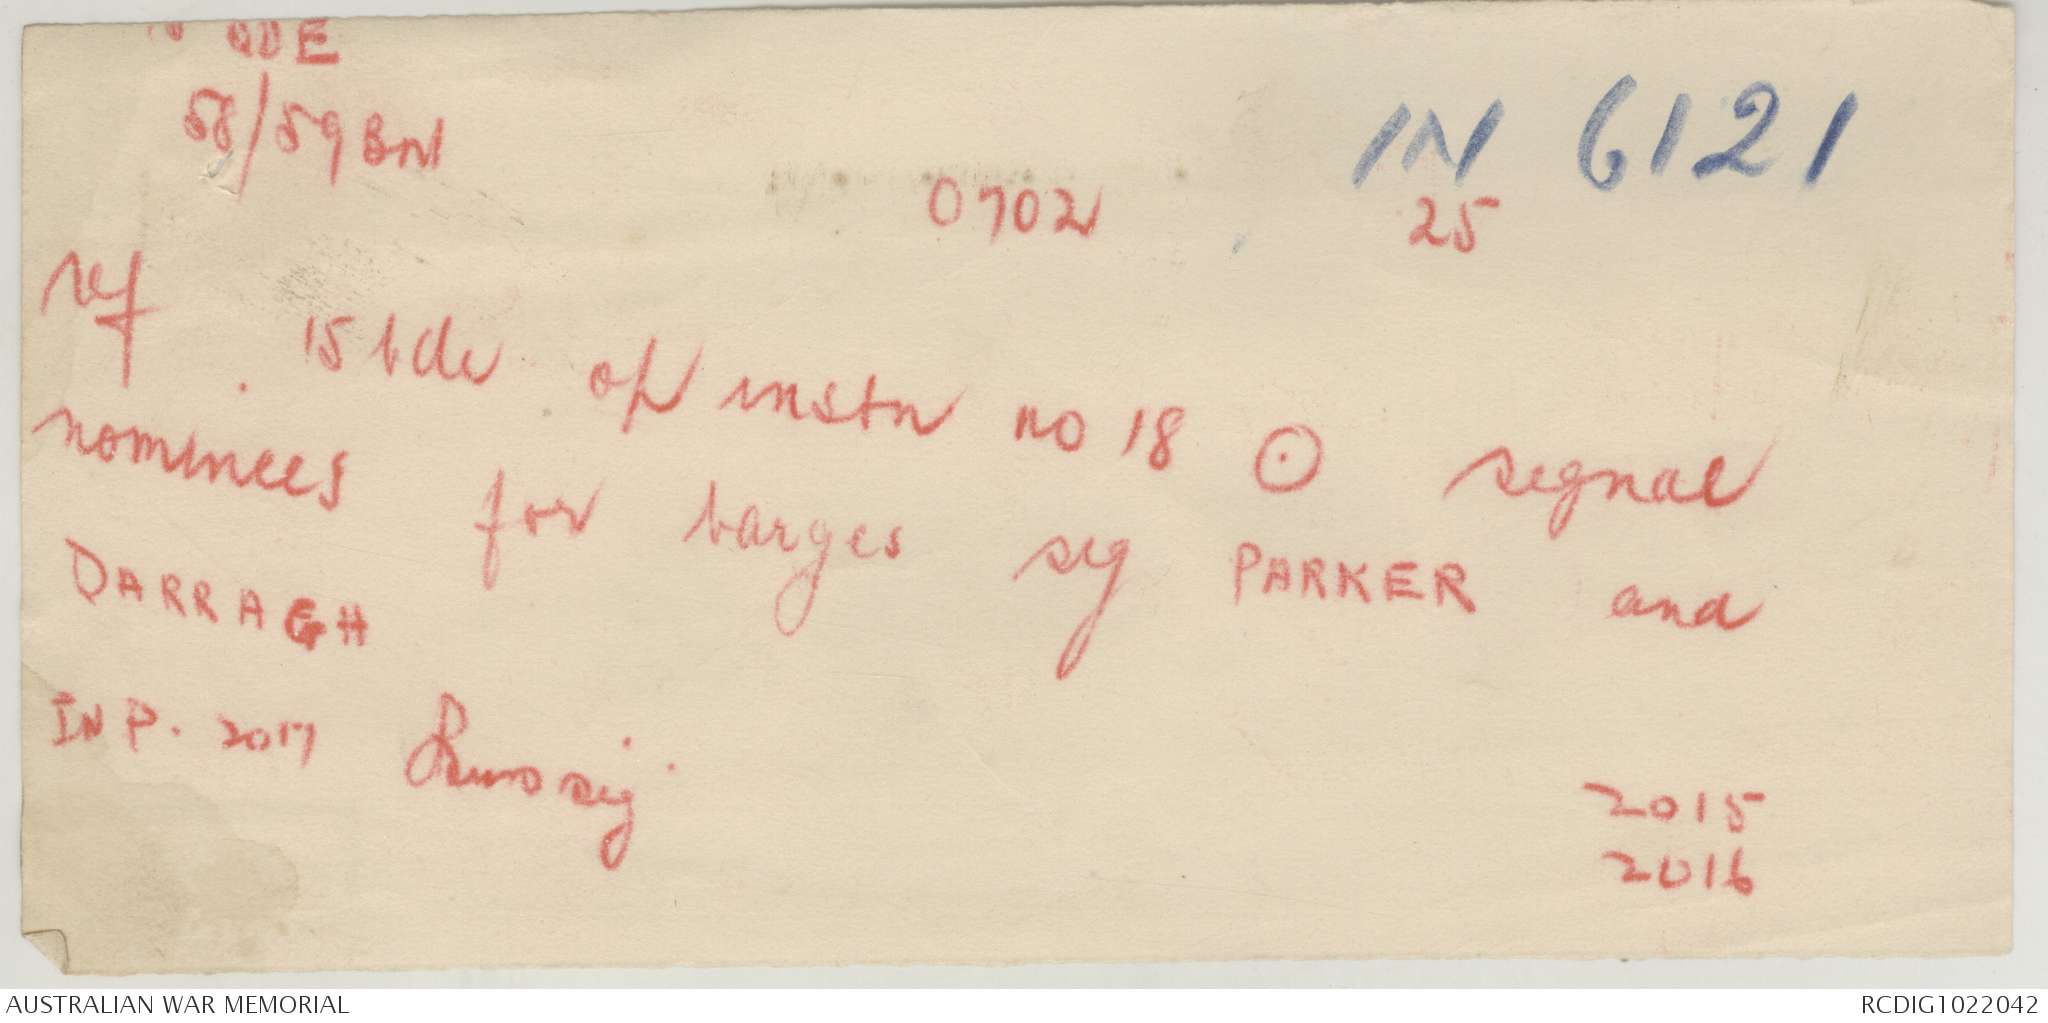 BDE
58/59 Bn
IN 6121
0702 25
ref 15 bde op instn no 18 ⊙ signal
nominees for barges sig PARKER and
DARRAGH
IN P. 2017 sig
2015
2016
AUSTRALIAN WAR MEMORIAL RCDIG1022042